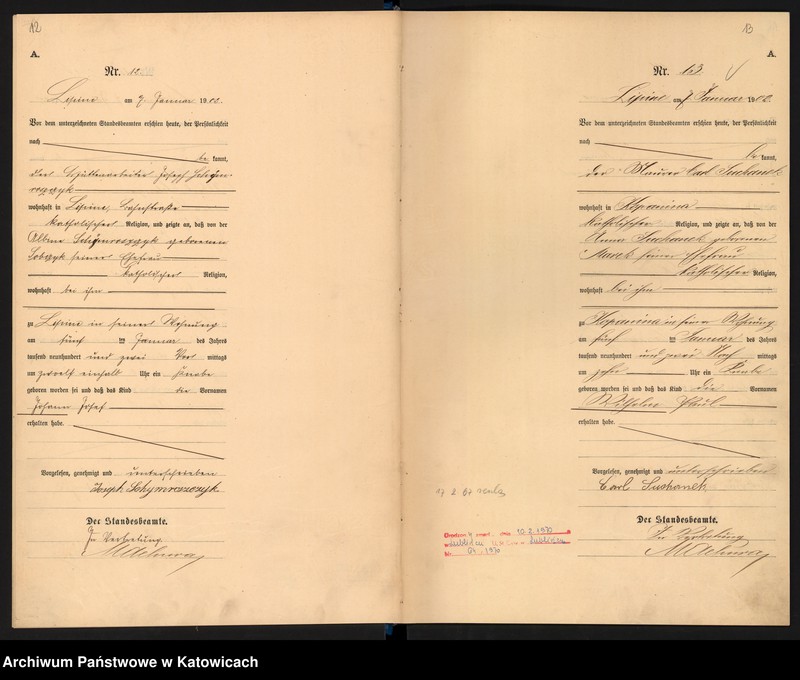 12
A.
Nr. 12
Lipine am 7 Januar 1902.
Vor dem unterzeichneten Standesbeamten erschien heute, der Persönlichkeit
nach
be kannt,
der Hüttenarbeiter Joseph
wohnhaft in Lipine, Bahnstraße
katholischer Religion, und zeigte an, daß von der
Albine geborenen
seiner Ehefrau
katholischer Religion,
wohnhaft bei ihm
zu Lipine in seiner Wohnung
am fünf ten Januar des Jahres
tausend neunhundert und zwei Vor mittags
um zwoelf einhalb Uhr ein Knabe
geboren worden sei und daß das Kind die Vornamen
Johann Josef
erhalten habe.
Vorgelesen, genehmigt und unterschrieben
Joseph
Der Standesbeamte.
In Vertretung
13
A.
Nr. 13
Lipine am 7 Januar 1902.
Vor dem unterzeichneten Standesbeamten erschien heute, der Persönlichkeit
nach
be kannt,
der Maurer Carl Suchanek
wohnhaft in Kopanina
katholischer Religion, und zeigte an, daß von der
Anna Suchanek geborenen
Marek seiner Ehefrau
katholischer Religion,
wohnhaft bei ihm
zu Kopanina in seiner Wohnung
am fünf ten Januar des Jahres
tausend neunhundert und zwei Nach mittags
um zehn Uhr ein Knabe
geboren worden sei und daß das Kind die Vornamen
Wilhelm Paul
erhalten habe.
Vorgelesen, genehmigt und unterschrieben
Carl Suchanek
Der Standesbeamte.
In Vertretung
10.2.1970
Lubliniec
Archiwum Państwowe w Katowicach